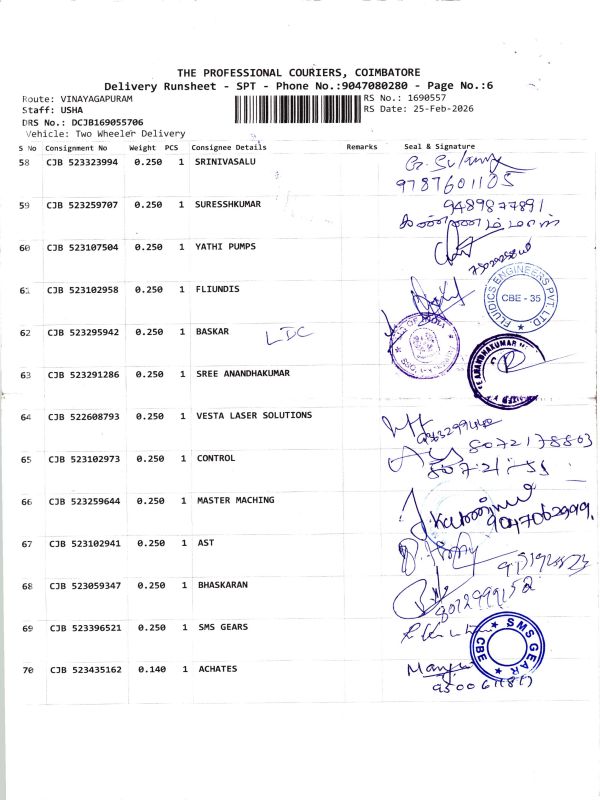 THE PROFESSIONAL COURIERS, COIMBATORE
Delivery Runsheet - SPT - Phone No.:9047080280 - Page No.:6
Route: VINAYAGAPURAM
RS No.: 1690557
Staff: USHA
RS Date: 25-Feb-2026
DRS No.: DCJB169055706
Vehicle: Two Wheeler Delivery
S No Consignment No Weight PCS Consignee Details Remarks Seal & Signature
58 CJB 523323994 0.250 1 SRINIVASALU
9787601105
59 CJB 523259707 0.250 1 SURESSHKUMAR 9489877891
60 CJB 523107504 0.250 1 YATHI PUMPS
61 CJB 523102958 0.250 1 FLIUNDIS
FLUIDICS ENGINEERS PVT. LTD. CBE - 35
62 CJB 523295942 0.250 1 BASKAR LDC
63 CJB 523291286 0.250 1 SREE ANANDHAKUMAR
64 CJB 522608793 0.250 1 VESTA LASER SOLUTIONS
8072178803
65 CJB 523102973 0.250 1 CONTROL
66 CJB 523259644 0.250 1 MASTER MACHING
67 CJB 523102941 0.250 1 AST
68 CJB 523059347 0.250 1 BHASKARAN
8072999152
69 CJB 523396521 0.250 1 SMS GEARS
SMS GEAR CBE
70 CJB 523435162 0.140 1 ACHATES